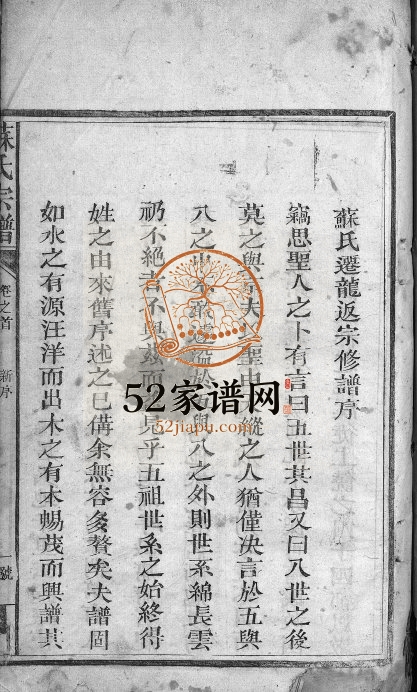 蘇氏遷龍返宗修譜序
竊思聖人之卜有言曰五世其昌又曰八世之後
莫之與夫聖由之人猶僅决言於五與
八之於五與八之外則世系綿長雲
礽不絕者乎五祖世系之始終得
姓之由來舊序述之已備余無容多贅矣夫譜固
如水之有源汪洋而出木之有本暢茂而興譜其
蘇氏宗譜
卷之首
新序
一號
52家谱网
52jiapu.com